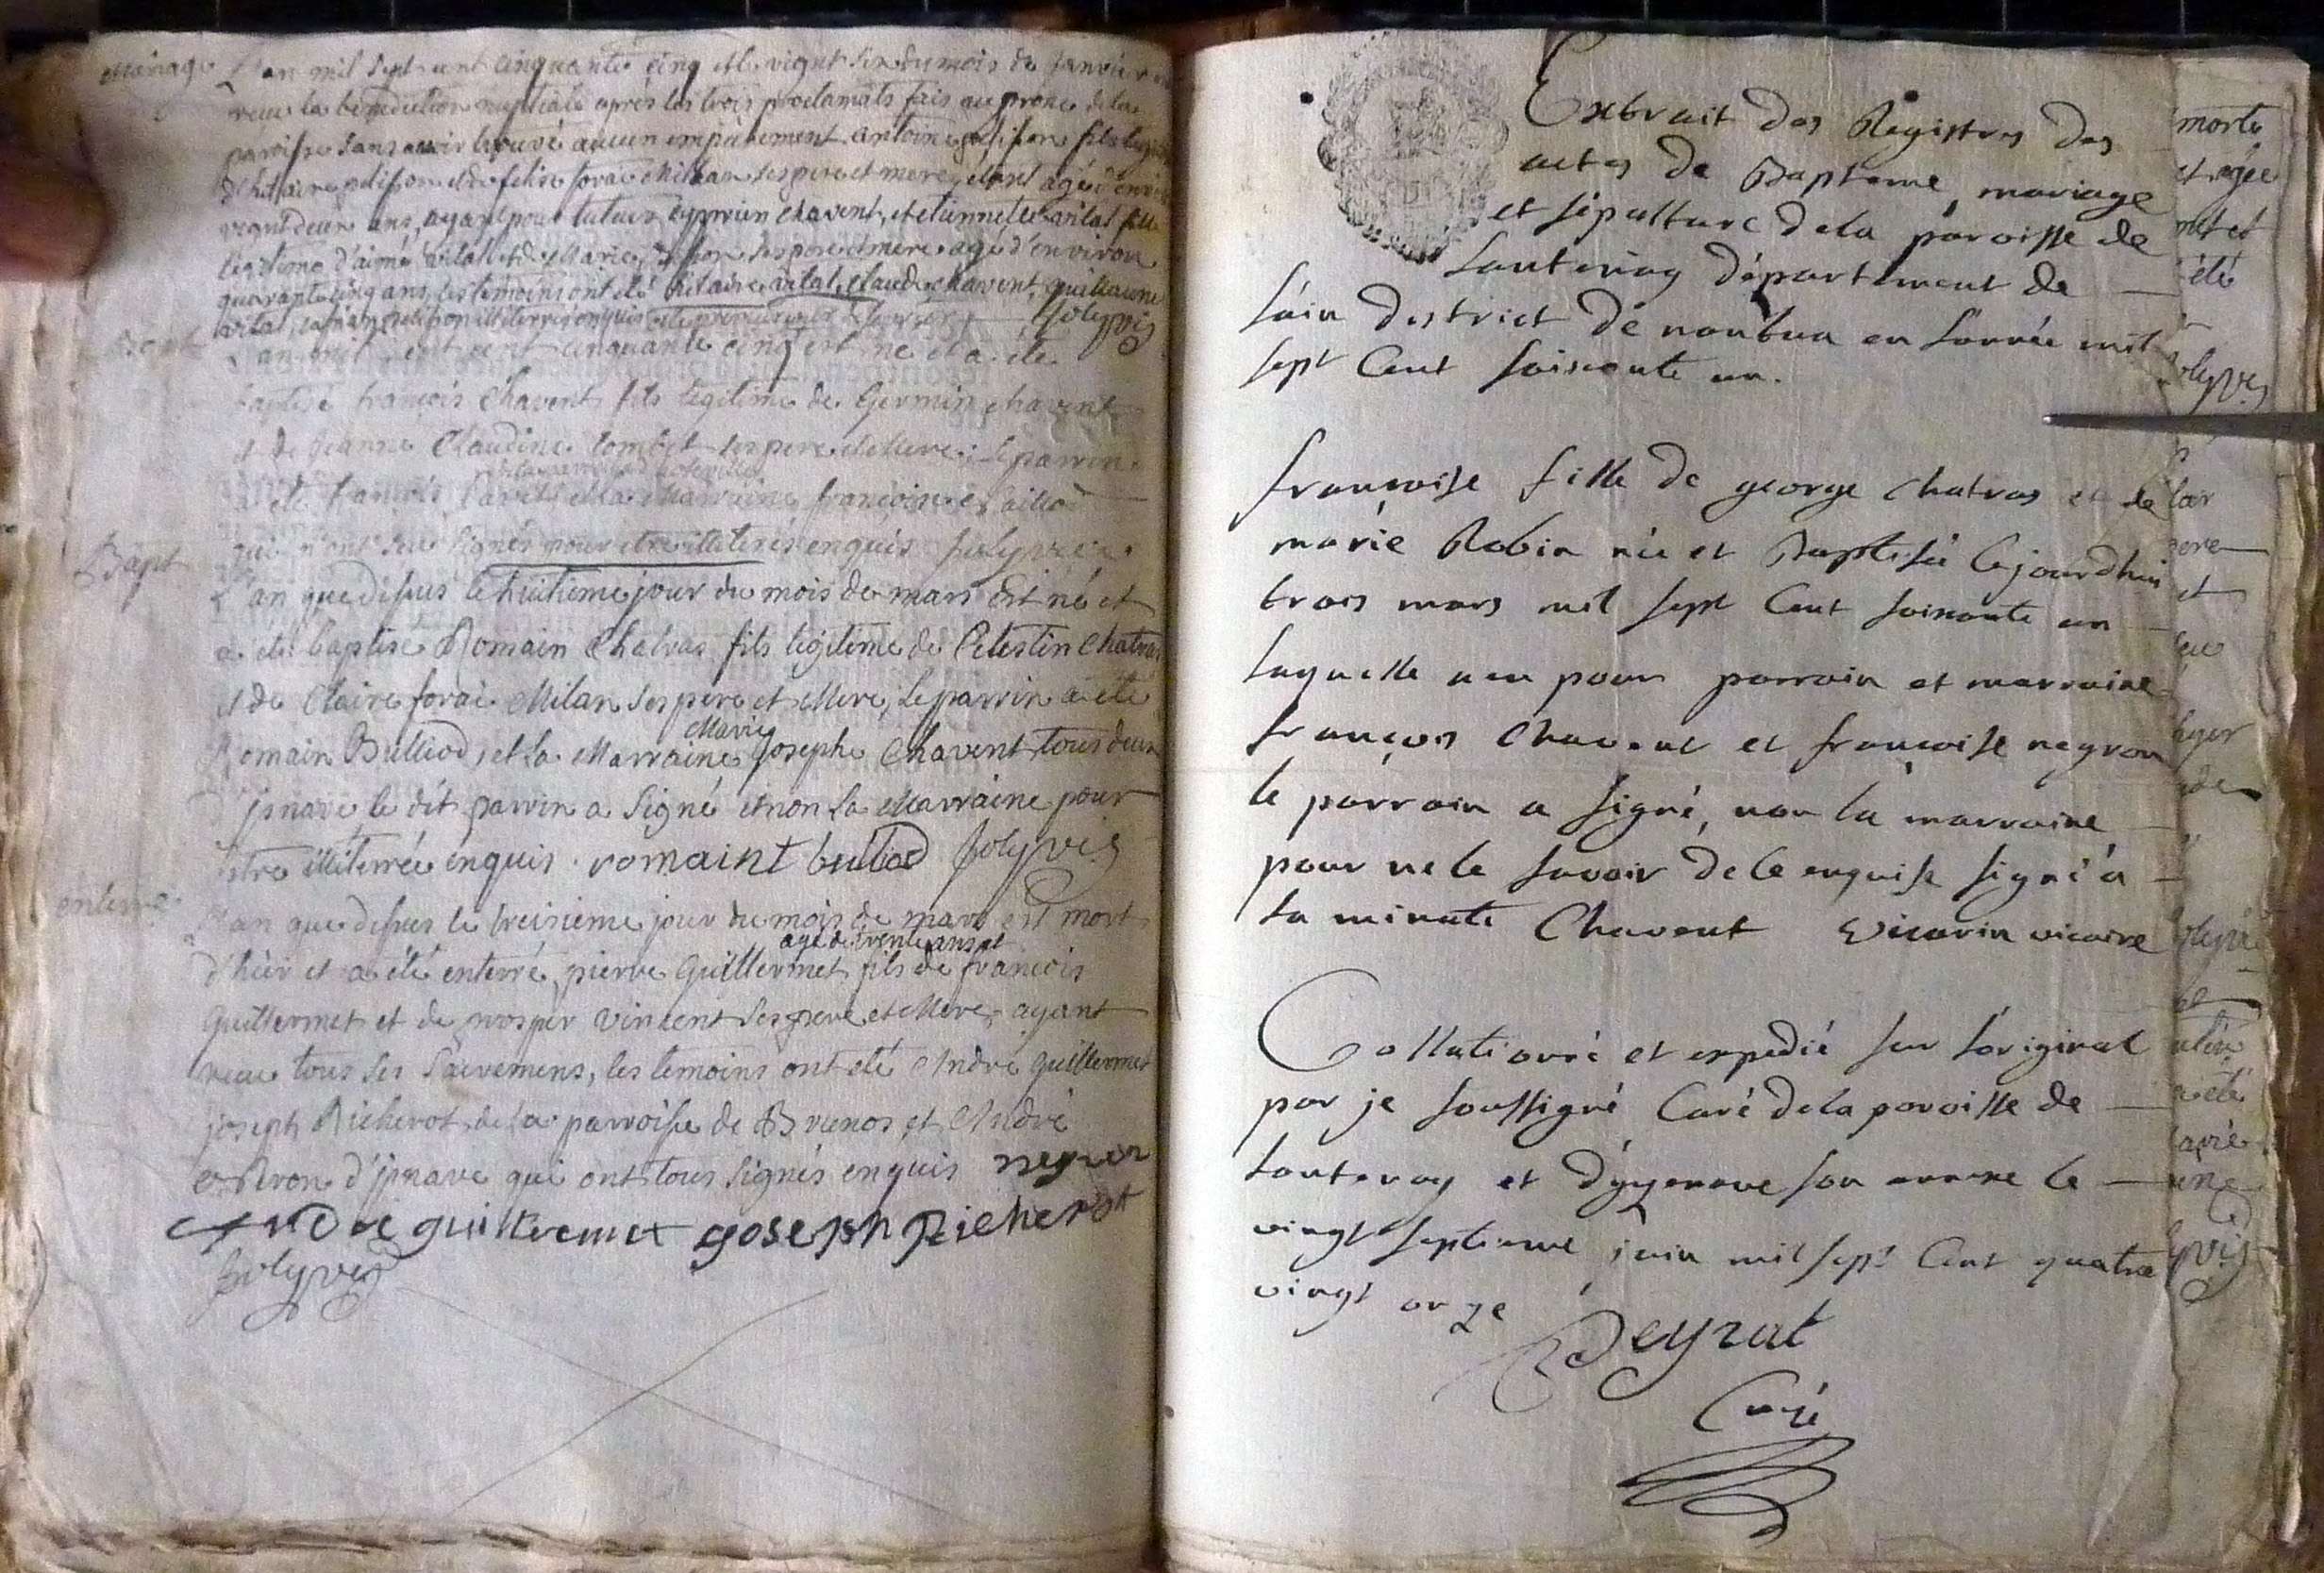 Mariage
L'an mil sept cent cinquante cinq et le vignt six du mois de janvier
reçue la benediction nuptiale aprés les trois proclamats fais au prone de la
paroisse sans avoir trouvé aucun empechement antoine pelisson fils
d'hilaire pelisson et de felise forai Milan ses pere et mere, agé d'environ
vignt deux ans, ayant pour tuteur cyprien chavent, et etiennete avital fille
legitime d'aimé avital et de Marie ses pere et mere agé d'environ
quarante cinq ans, les temoins ont été hilaire vital, claude chavent, guillaume
avital, illiterés enquis Jolyvis
Bapt
L'an mil sept cent cinquante cinq est né et a été
baptisé françois Chavent fils legitime de Germin chavent
et de jeanne Claudine tombet ses pere et Mere: le parrin
a été françois et la Marraine françoise
qui n'ont sceu signés pour etre illiterés enquis Jolyvis
Bapt
L'an que dessus le huitieme jour du mois de mars est né et
a été baptisé Romain Chatras fils legitime de Celestin Chatras
et de Claire forai Milan ses pere et Mere, le parrin a été
Marie
Romain Bulliod, et la Marraine josephe Chavent tous deux
d'jnave le dit parrin a signé et non la Marraine pour
estre illiterrée enquis. romaint buliod Jolyvis
enterre.
L'an que dessus le treisieme jour du mois de mars est mort
agé de trente ans et
d'hier et a été enterré, pierre Guillermet fils de françois
Guillermet et de prosper Vincent ses pere et Mere, ayant
receu tous ses sacremens, les temoins ont été André Guillermet
joseph Richerot de la parroisse de Brenos et André
negron d'jnave qui ont tous signés enquis negron
Andre guillermet joseph Richerot
Jolyvis
Extrait des Registres des
actes de Bapteme, mariage
et sépulture de la paroisse de
Lantenay département de
l'ain district de nantua en l'année mil
sept Cent soixante un.
francoise fille de george chatras et de
marie Robin née et Baptisée cejourdhui
trois mars mil sept Cent soixante un
laquelle a eu pour parrain et marraine
françois Chavent et francoise negron
le parrain a signé, non la marraine
pour ne le savoir de ce enquise signé a
la minute Chavent vicarin vicaire
Collationné et expedié sur l'original
par je soussigné Curé de la paroisse de
Lantenay et d'yzenave son annexe le
vingt septieme juin mil sept Cent quatre
vingt onze
Deyrat
Curé
morte
et agée
été
Jolyvis